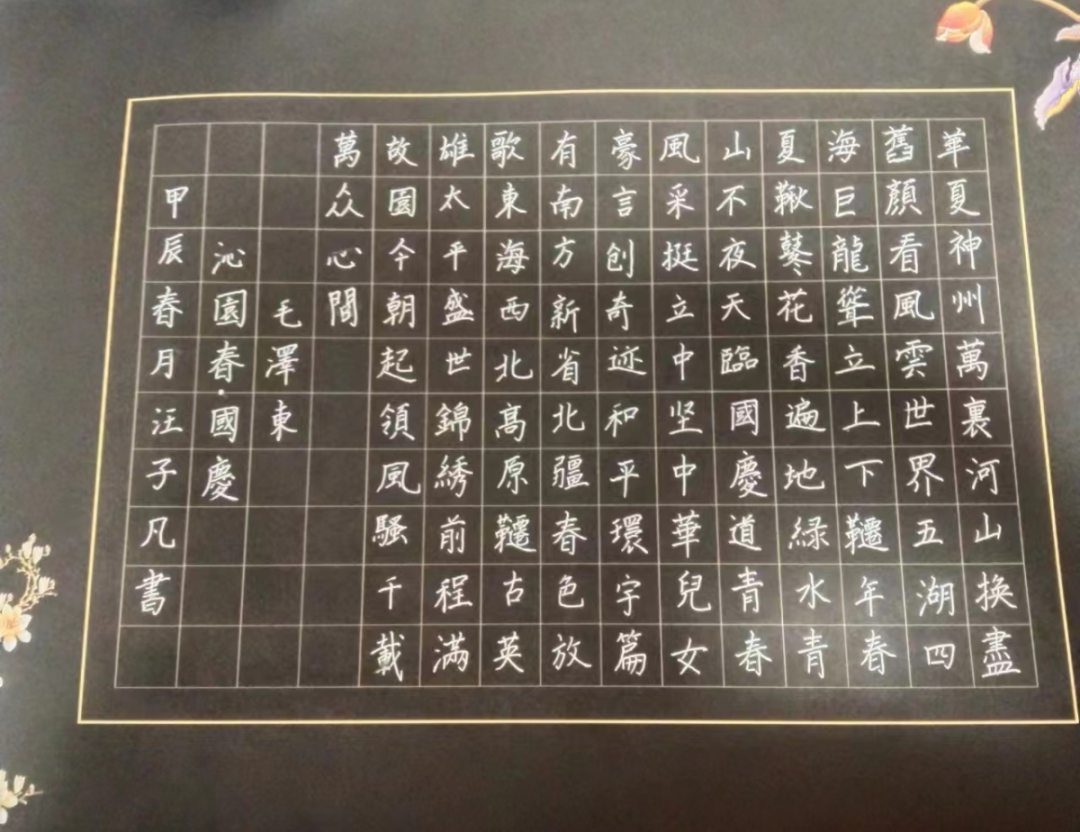 華夏神州萬裏河山換盡
舊顏看風雲世界五湖四
海巨龍聳立上下韆年春
夏鞦鼕花香遍地緑水青
山不夜天臨國慶道青春
風采挺立中坚中華兒女
豪言创奇迹和平環宇篇
有南方新省北疆春色放
歌東海西北髙原韆古英
雄太平盛世錦綉前程滿
故園今朝起領風騷千載
萬众心間
毛澤東
沁園春·國慶
甲辰春月汪子凡書